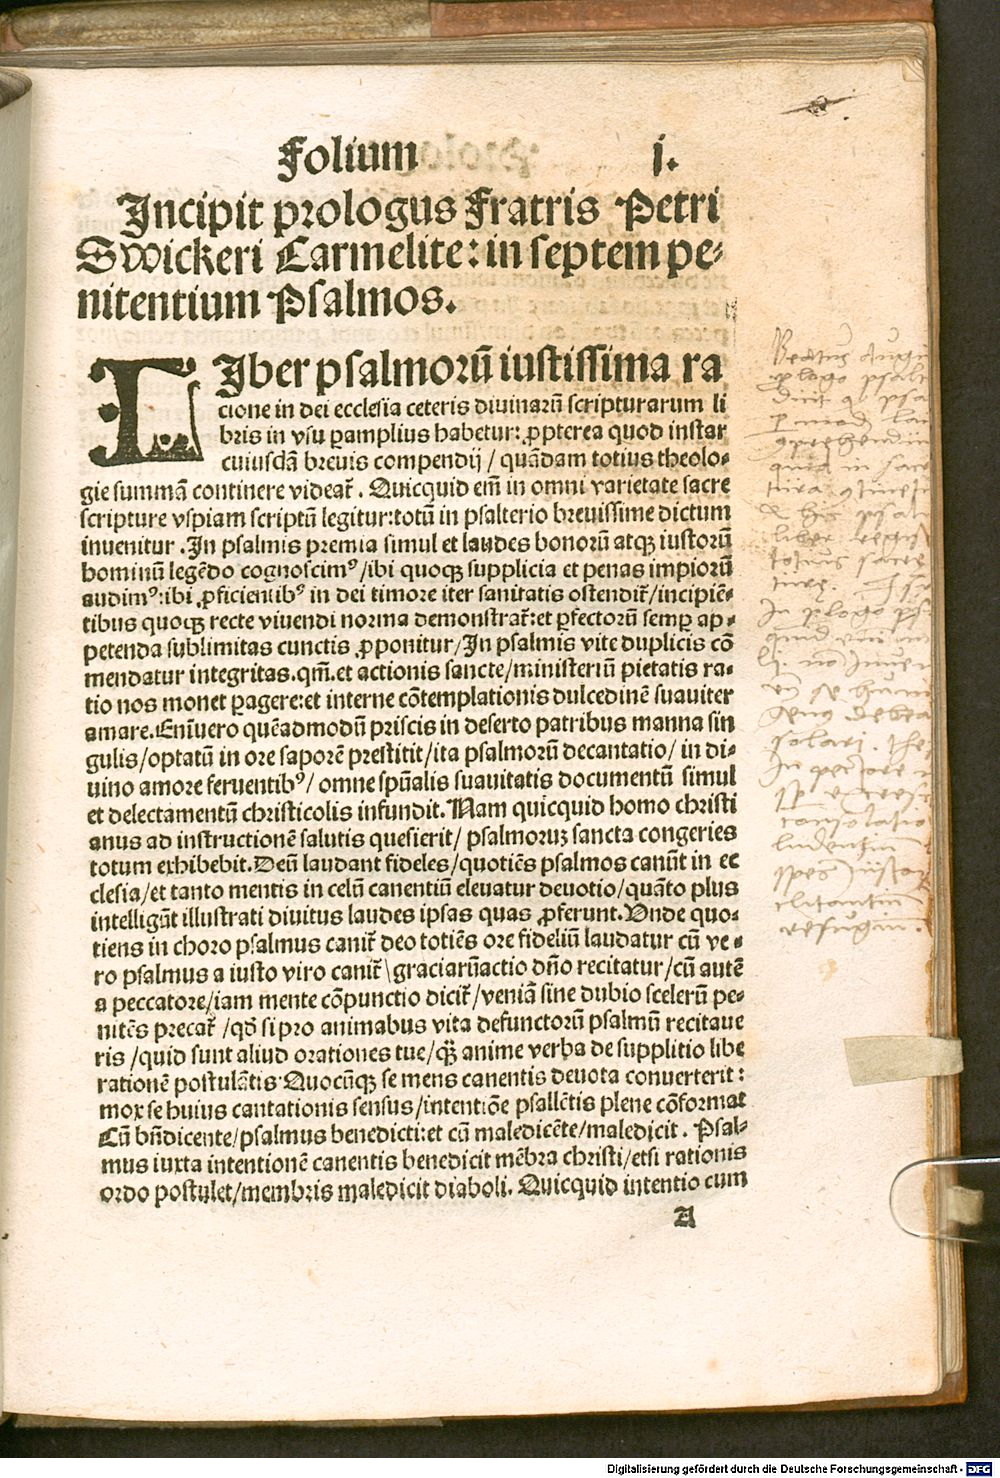 Folium j.
Incipit prologus Fratris Petri
Swickeri Carmelite: in septem pe⸗
nitentium Psalmos.
LIber psalmorū iustissima ra
cione in dei ecclesia ceteris diuinarū scripturarum li
bris in vsu ꝑamplius habetur: ꝓpterea quod instar
cuiusdā breuis compendij / quādam totius theolo⸗
gie summā continere videat᷑. Quicquid em̄ in omni varietate sacre
scripture vspiam scriptū legitur: totū in psalterio breuissime dictum
inuenitur. In psalmis premia simul et laudes bonorū atqꝫ iustorū
hominū legēdo cognoscimꝰ / ibi quoqꝫ supplicia et penas impiorū
audimꝰ: ibi ꝓficientibꝰ in dei timore iter sanitatis ostendit᷑ / incipiē⸗
tibus quoqꝫ recte viuendi norma demonstrat᷑: et ꝑfectorū semꝑ ap⸗
petenda sublimitas cunctis ꝓponitur / In psalmis vite duplicis cō
mendatur integritas. qm̄. et actionis sancte / ministeriū pietatis ra⸗
tio nos monet ꝑagere: et interne cōtemplationis dulcedinē suauiter
amare. Enīuero quēadmodū priscis in deserto patribus manna sin
gulis / optatū in ore saporē prestitit / ita psalmorū decantatio / in di⸗
uino amore feruentibꝰ / omne spūalis suauitatis documentū simul
et delectamentū christicolis infundit. Nam quicquid homo christi
anus ad instructionē salutis quesierit / psalmoruꝫ sancta congeries
totum exhibebit. Deū laudant fideles / quotiēs psalmos canūt in ec
clesia / et tanto mentis in celū canentiū eleuatur deuotio / quāto plus
intelligūt illustrati diuitus laudes ipsas quas ꝓferunt. Vnde quo⸗
tiens in choro psalmus canit᷑ deo totiēs ore fideliū laudatur cū ve⸗
ro psalmus a iusto viro canit᷑ \ graciarūactio dn̄o recitatur / cū autē
a peccatore / iam mente cōpunctio dicit᷑ / veniā sine dubio scelerū pe⸗
nitēs precat᷑ / qd̄ si pro animabus vita defunctorū psalmū recitaue
ris / quid sunt aliud orationes tue / q̄ꝫ anime verba de supplitio libe
rationē postulātis Quocūqꝫ se mens canentis deuota conuerterit:
mox se huius cantationis sensus / intentiōe psallētis plene cōformat
Cū bn̄dicente / psalmus benedicti: et cū maledicēte / maledicit. Psal⸗
mus iuxta intentionē canentis benedicit mēbra christi / etsi rationis
ordo postulet / membris maledicit diaboli. Quicquid intentio cum
A
Beatus Augu
plogo psalt
dicit
quia in sacr
liber
totius sacre
ture.
In plogo ps
solari.
In
consolatio
refugiū.
Digitalisierung gefördert durch die Deutsche Forschungsgemeinschaft - DFG